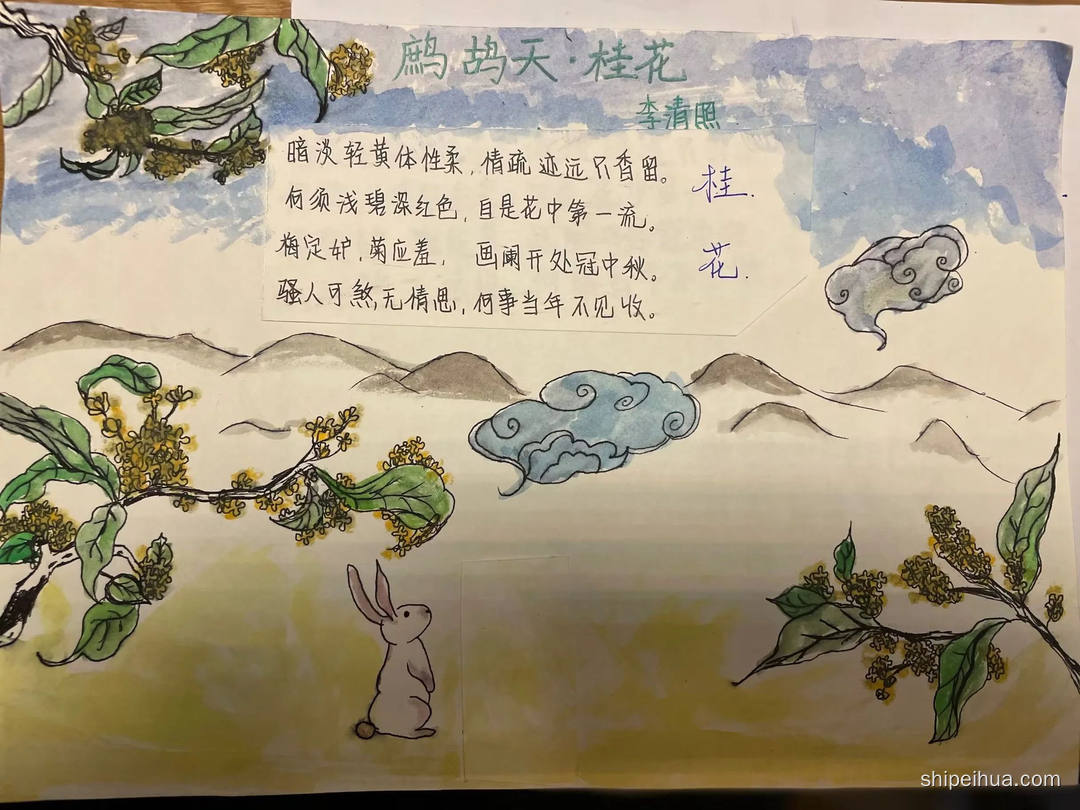 鹧鸪天·桂花
李清照
暗淡轻黄体性柔，情疏迹远只香留。
何须浅碧深红色，自是花中第一流。
梅定妒，菊应羞， 画阑开处冠中秋。
骚人可煞无情思，何事当年不见收。
桂.
花.
shipeihua.com